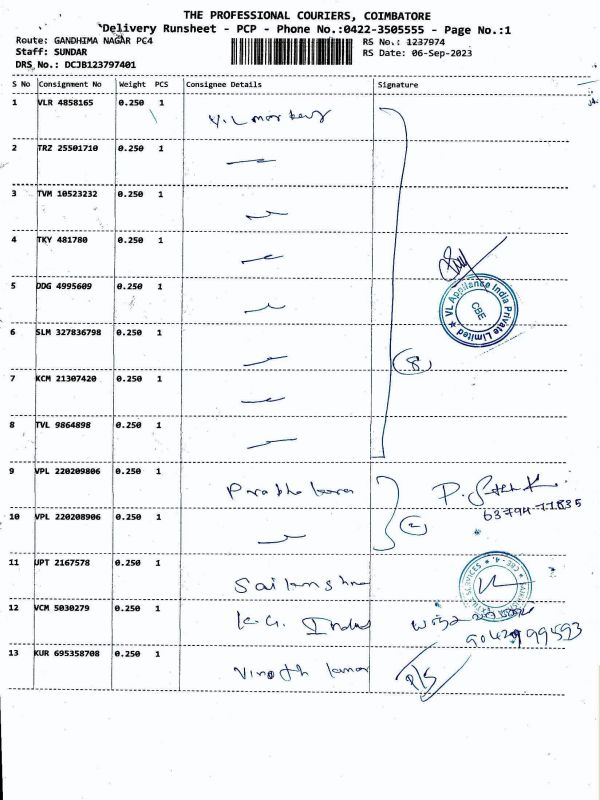 THE PROFESSIONAL COURIERS, COIMBATORE
Delivery Runsheet - PCP - Phone No.:0422-3505555 - Page No.:1
Route: GANDHIMA NAGAR PC4
RS No.: 1237974
Staff: SUNDAR
RS Date: 06-Sep-2023
DRS No.: DCJB123797401
S No Consignment No Weight PCS Consignee Details Signature
1 VLR 4858165 0.250 1
2 TRZ 25501710 0.250 1
3 TVM 10523232 0.250 1
4 TKY 481780 0.250 1
VL Appliance India Private Limited ★ CBE
5 DDG 4995609 0.250 1
6 SLM 327836798 0.250 1
8
7 KCM 21307420 0.250 1
8 TVL 9864898 0.250 1
9 VPL 220209806 0.250 1 Prabhakaran
10 VPL 220208906 0.250 1
2
63794 77835
11 JPT 2167578 0.250 1
12 VCM 5030279 0.250 1 K.G.
9042999593
13 KUR 695358708 0.250 1 Vinoth kumar